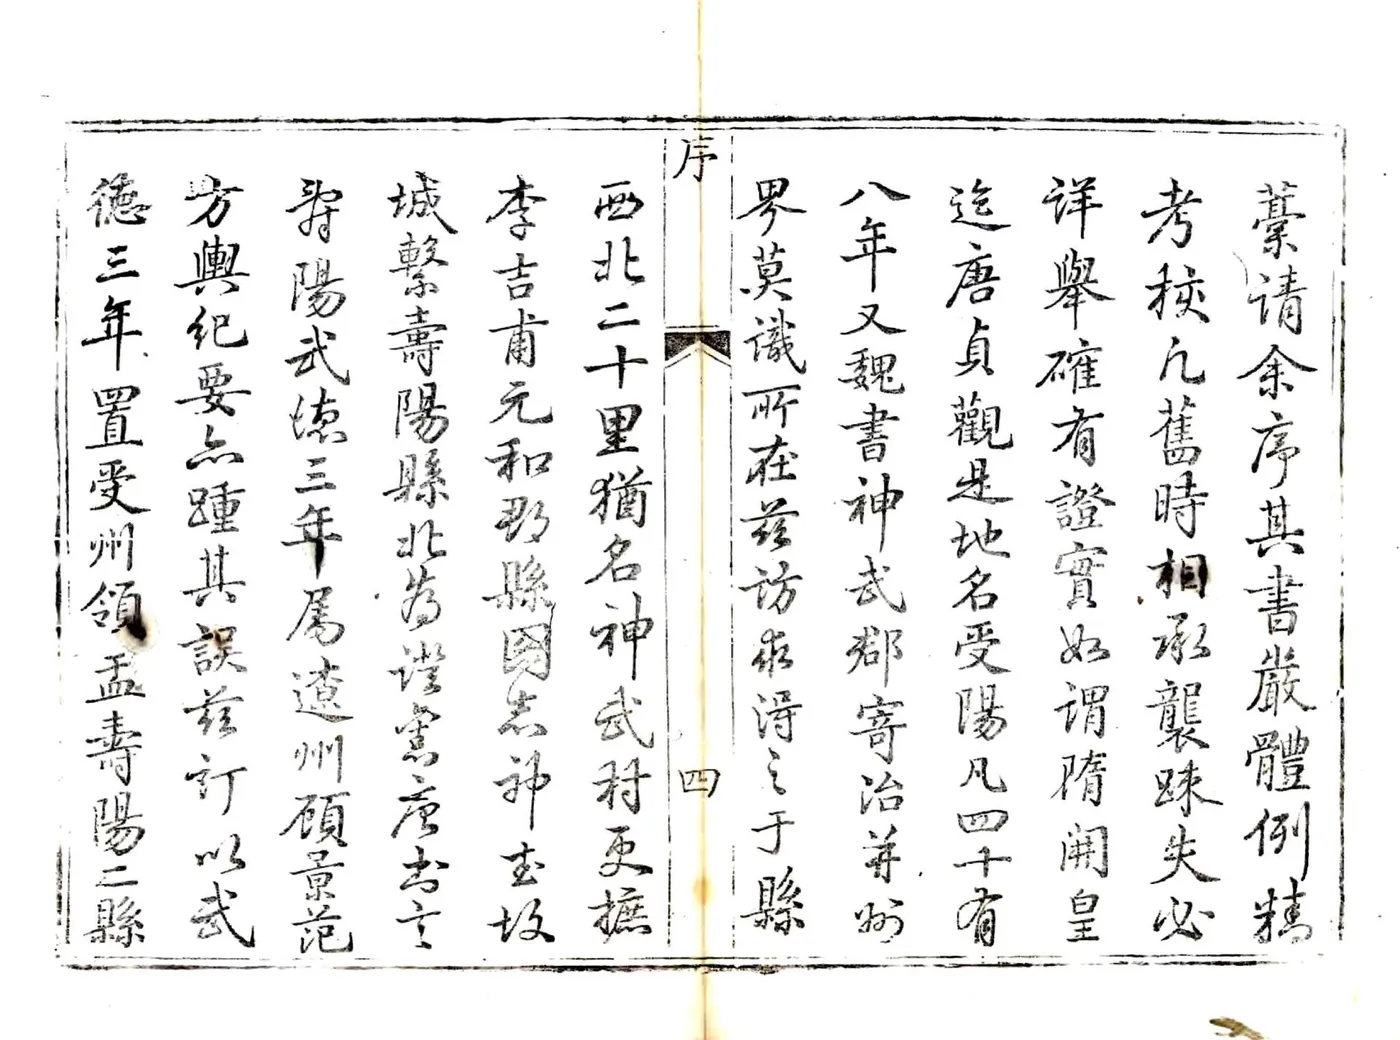 藁请余序其書嚴體例精
考核凡舊時相承襲踈失必
详舉確有證實如谓隋開皇
迄唐貞觀是地名受陽凡四十有
八年又魏書神武郡寄治并州
界莫識所在兹访求淂之于縣
序
四
西北二十里猶名神武村更摭
李吉甫元和郡縣圖志神武故
城繫壽陽縣北為證旧唐书言
寿陽武德三年属遼州顾景范
方輿纪要亦踵其誤兹订以武
德三年置受州领盂壽陽二縣